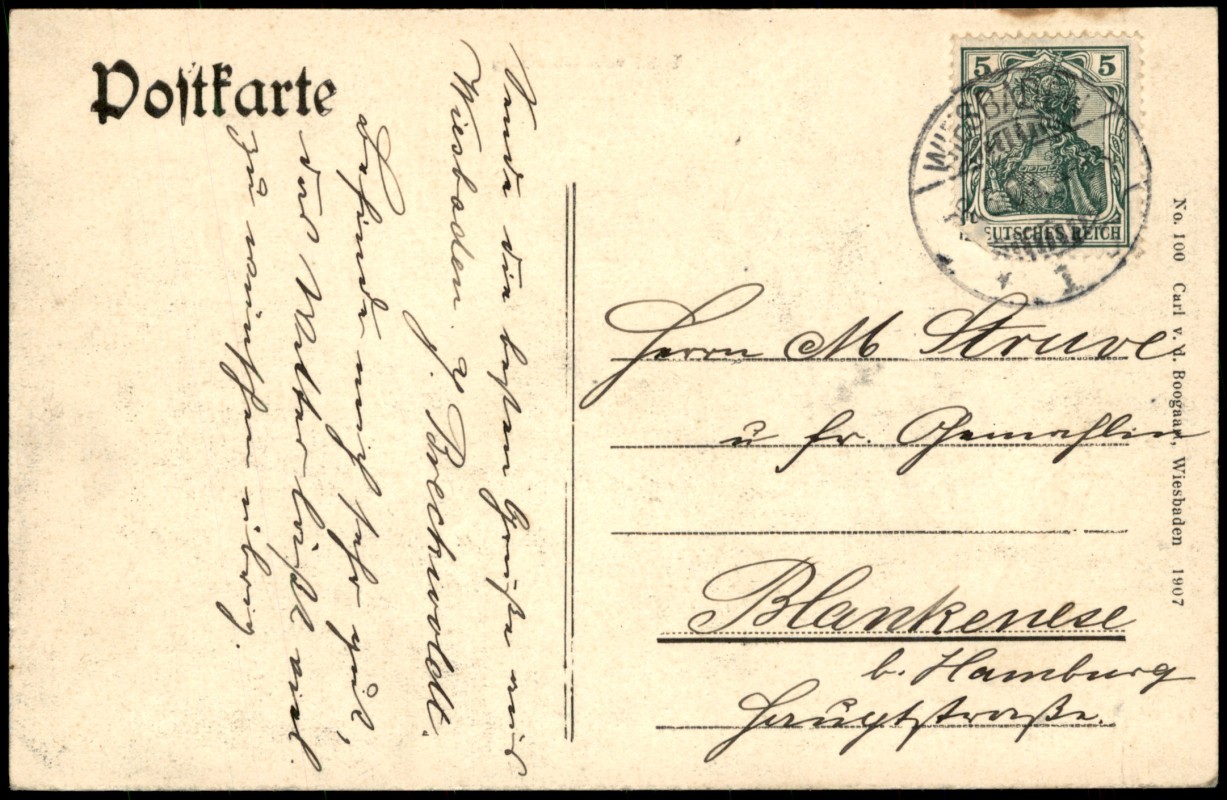 Postkarte
Sende die besten Grüße aus
Wiesbaden. J. Brechwoldt.
Befinde mich sehr gut,
das Wetter läßt viel
zu wünschen übrig.
5 5
DEUTSCHES REICH
WIESBADEN
* 1
Herrn M Struve
u fr. Gemahlin
Blankenese
b. Hamburg
Hauptstraße.
No. 100 Carl v. d. Boogaart, Wiesbaden 1907